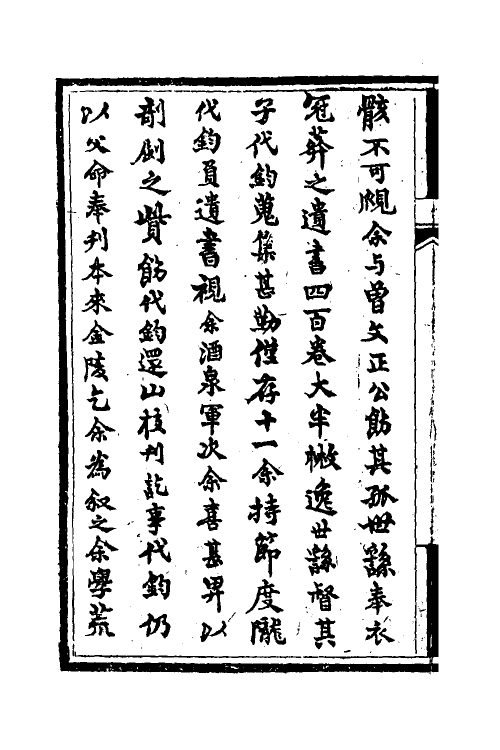 骸不可覩余与曾文正公飭其孤世繇奉衣
冠葬之遺書四百卷大半散逸世繇督其
子代鈞蒐集甚勤僅存十一余持節度隴
代鈞負遺書視余酒泉軍次余喜甚畀以
剞劂之貲飭代鈞還山校刊訖事代鈞仍
以父命奉刊本來金陵乞余為叙之余學荒